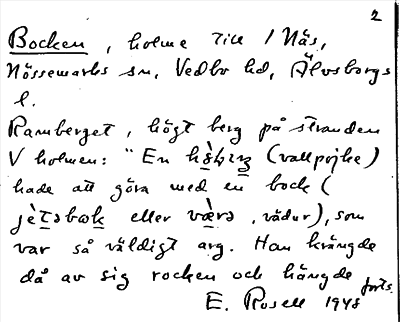 2
Bocken, holme till 1 Näs,
Nössemarks sn, Vedbo hd, Älvsborgs
l.
Ramberget, högt berg på stranden
V holmen: "En (vallpojke)
hade att göra med en bock (
jètsbok eller værs, vädur), som
var så väldigt arg. Han krängde
då av sig rocken och hängde forts.
E. Rosell 1948